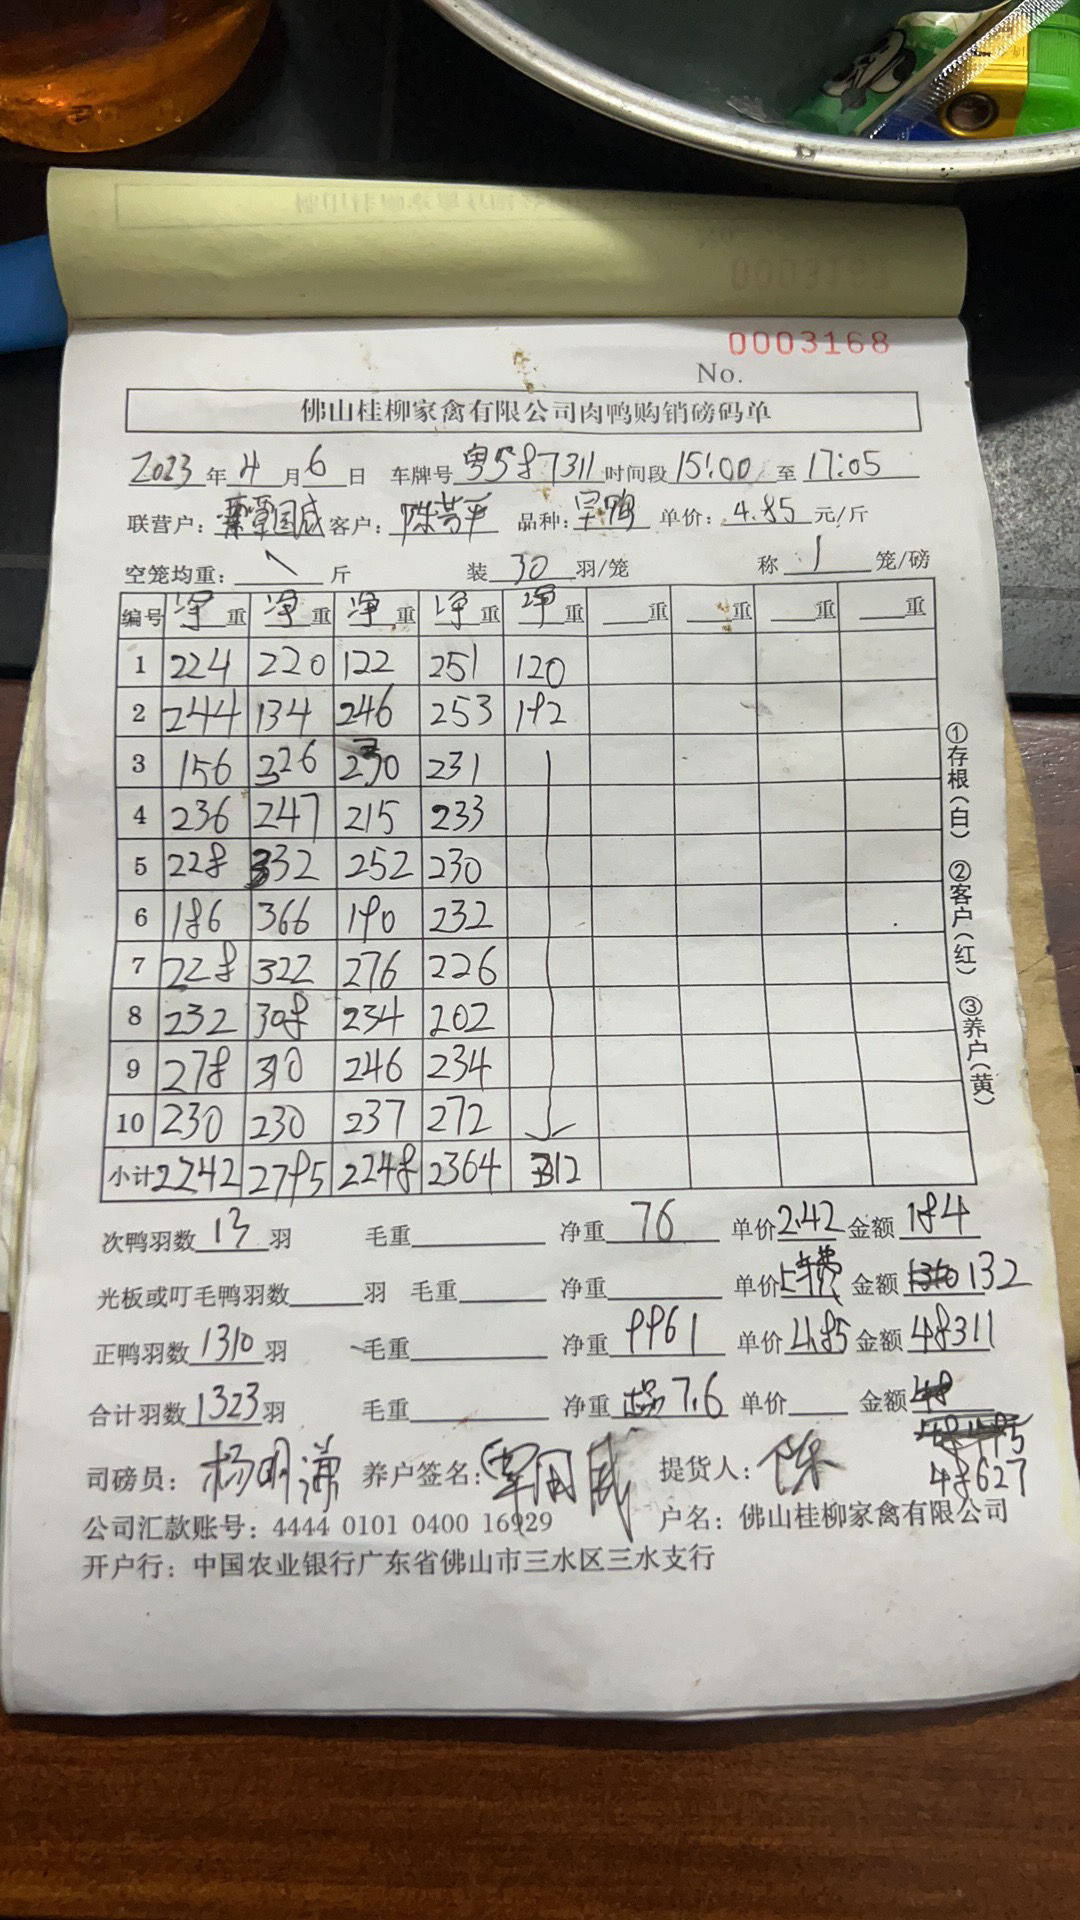 0003168
No.
佛山桂柳家禽有限公司肉鸭购销磅码单
2023年4月6日 车牌号粤587311时间段15:00至17:05
联营户：覃国威 客户：陈芳平 品种：旱鸭 单价：4.85元/斤
空笼均重：\斤 装30羽/笼 称1笼/磅
编号 净重 净重 净重 净重 净重 重 重 重 重
1 224 220 122 251 120
2 244 134 246 253 192
3 156 326 230 231
4 236 247 215 233
5 228 332 252 230
6 186 366 190 232
7 228 322 276 226
8 232 308 234 202
9 278 310 246 234
10 230 230 237 272
小计 2242 2795 2248 2364 312
次鸭羽数13羽 毛重 净重76 单价2.42 金额184
光板或叮毛鸭羽数 羽 毛重 净重 单价 金额132
正鸭羽数1310羽 毛重 净重9961 单价4.85 金额48311
合计羽数1323羽 毛重 净重 7.6 单价 金额
48627
司磅员：杨明谦 养户签名：覃国威 提货人：陈
公司汇款账号：4444 0101 0400 16929 户名：佛山桂柳家禽有限公司
开户行：中国农业银行广东省佛山市三水区三水支行
①存根（白） ②客户（红） ③养户（黄）